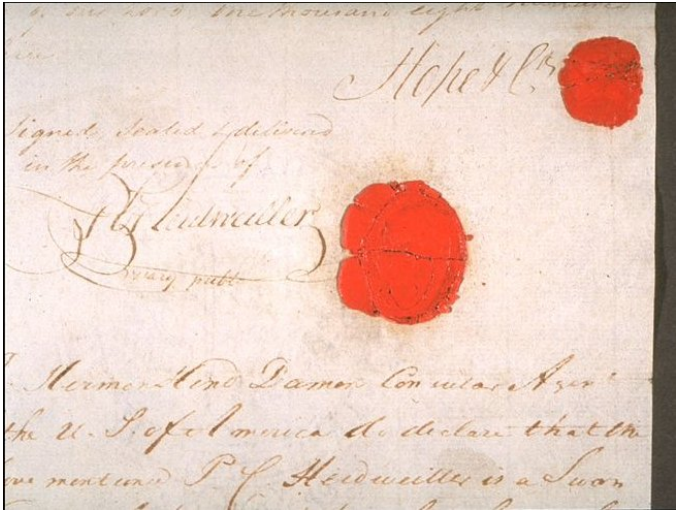 one thousand eight hundred
Hope & Co
Signed, Sealed & delivered
in the presence of
Heidweiller
Notary publ
Herman Hend Damen Consular Agent
the U. S. of America do declare that the
ove mentioned P C Heidweiller is a Sworn